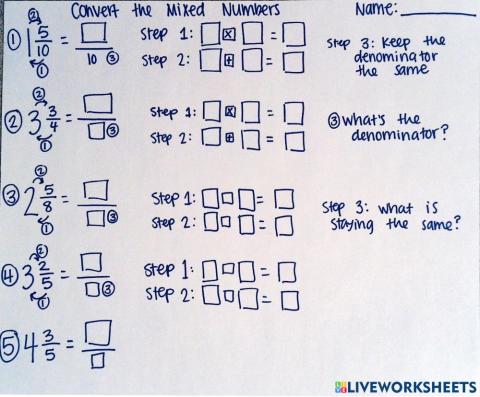 Convert the Mixed Numbers Name:
① 1 5/10 = □/10 ③ Step 1: □ ☒ □ = □
② ① Step 2: □ ⊞ □ = □
Step 3: Keep the
denominator
the same
② 3 3/4 = □/□ ③ Step 1: □ ☒ □ = □
② ① Step 2: □ ⊞ □ = □
③ What's the
denominator?
③ 2 5/8 = □/□ ③ Step 1: □ □ □ = □
② ① Step 2: □ □ □ = □
Step 3: What is
staying the same?
④ 3 2/5 = □/□ ③ Step 1: □ □ □ = □
② ① Step 2: □ □ □ = □
⑤ 4 3/5 = □/□
LIVEWORKSHEETS